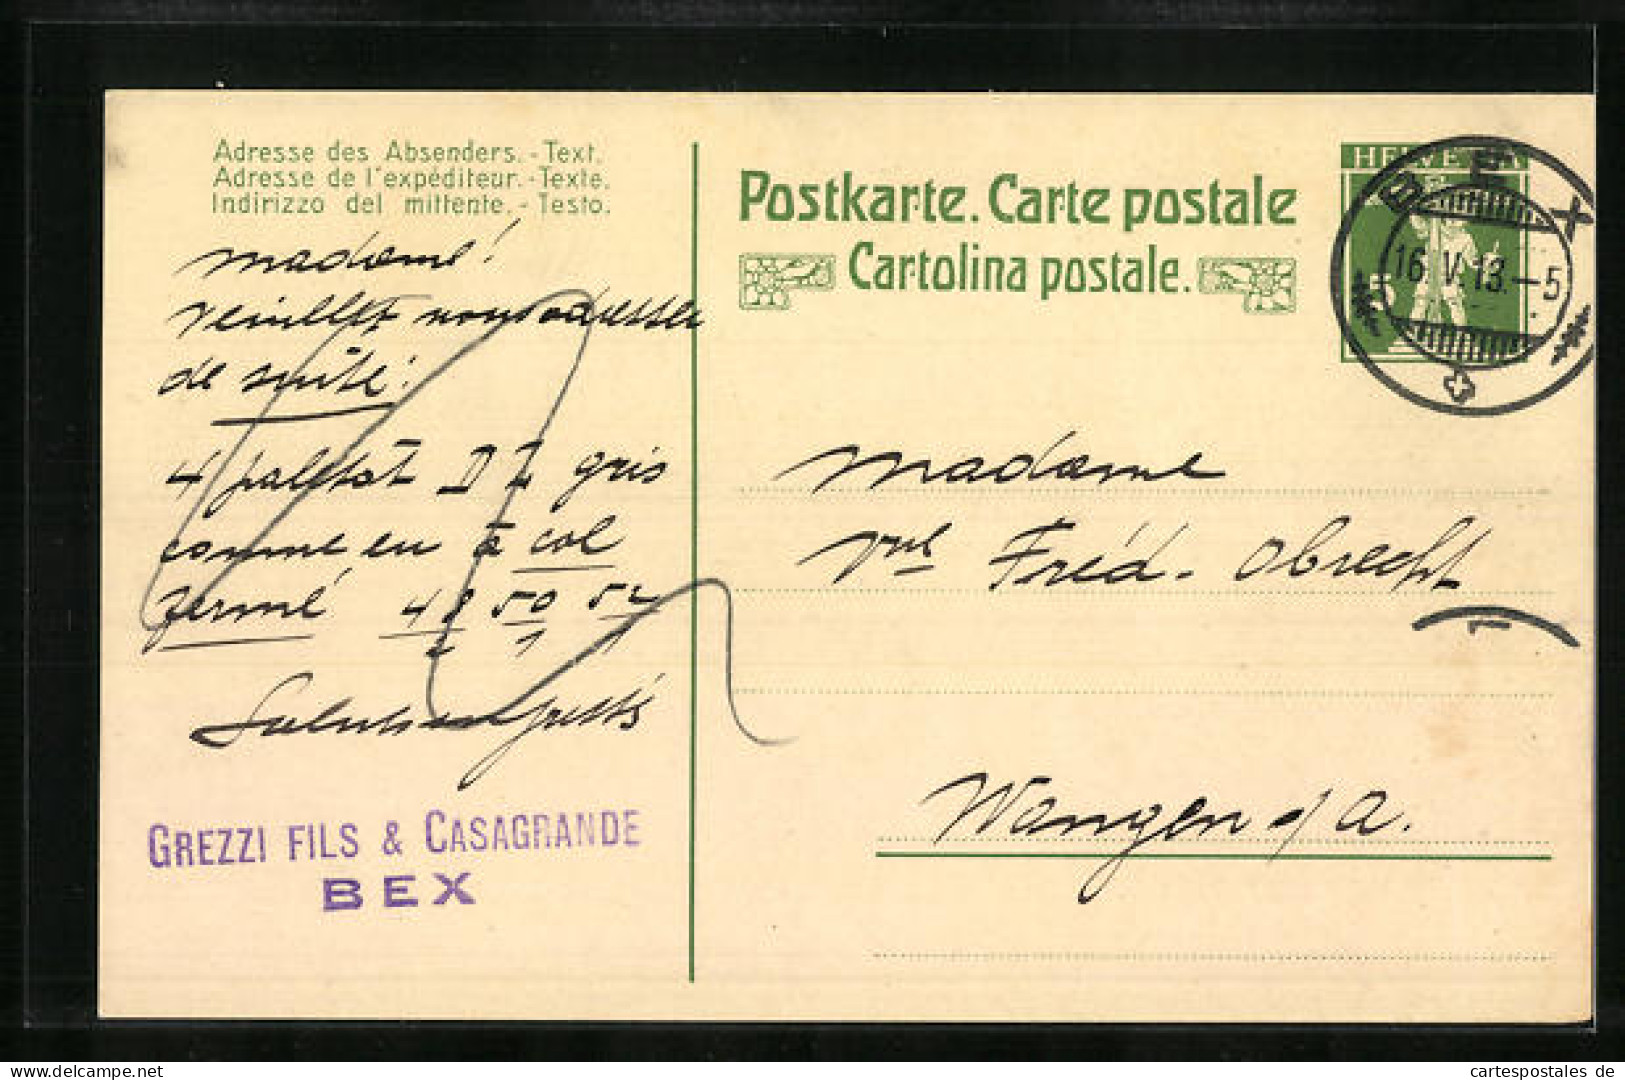 Adresse des Absenders. - Text.
Adresse de l'expéditeur. - Texte.
Indirizzo del mittente. - Testo.
Postkarte. Carte postale
Cartolina postale.
HELVETIA
5
BEX
16.V.13.-5
madame!
veuillez nous adresser
de suite:
4 paletot D 2 gris
comme en à col
fermé 48 50 52
2 1 1
Salutations
GREZZI FILS & CASAGRANDE
BEX
madame
Fréd. Obrecht
1
Wangen a/A.
cartespostales de